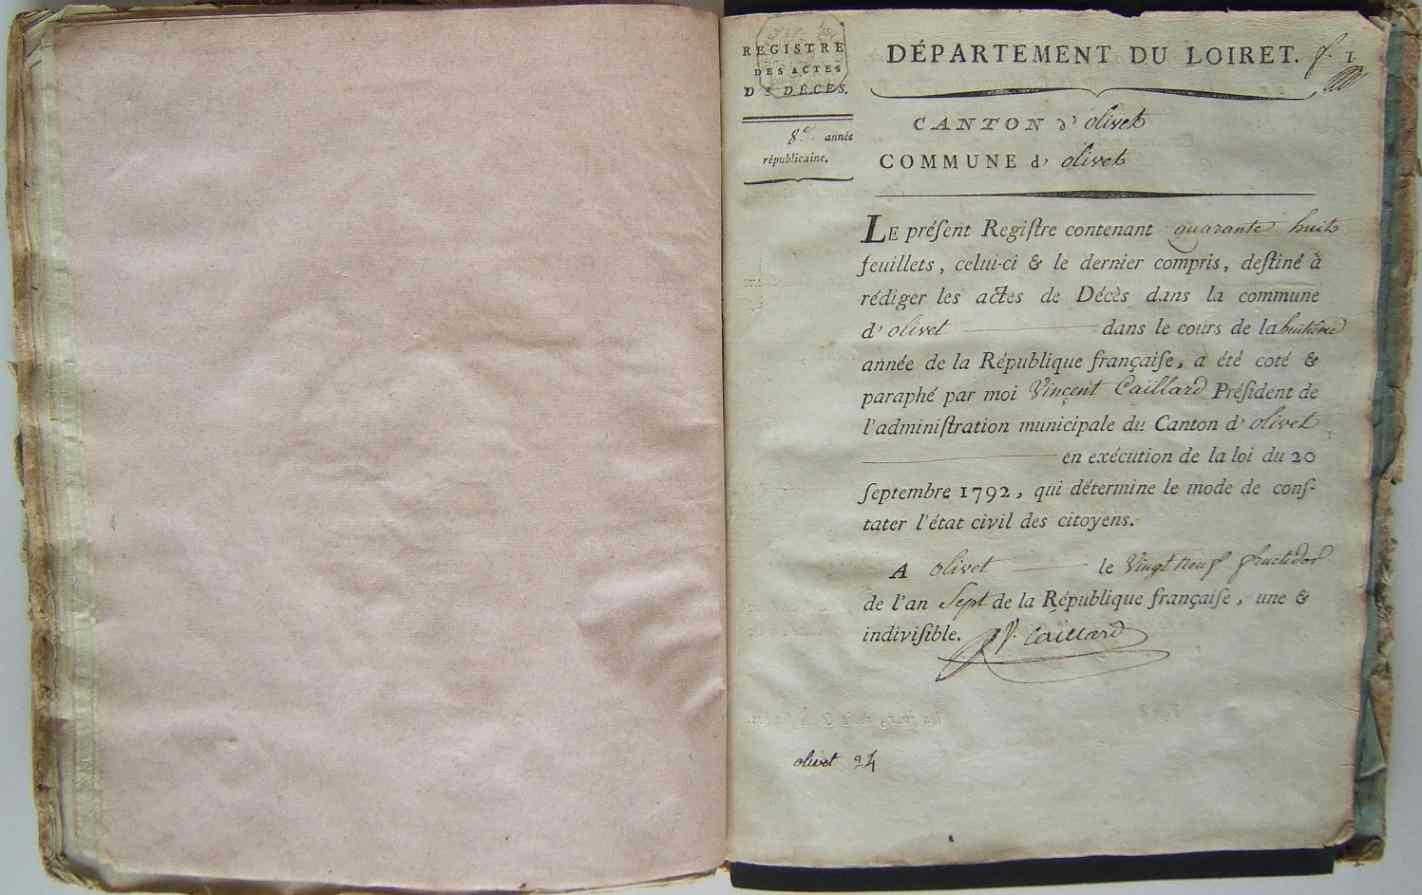 REGISTRE
DES ACTES
DE DÉCÈS.
8.e année
républicaine.
DÉPARTEMENT DU LOIRET. f. 1
CANTON d' olivet
COMMUNE d' olivet
LE préſent Regiſtre contenant quarante huit
feuillets, celui-ci & le dernier compris, deſtiné à
rédiger les actes de Décès dans la commune
d' olivet dans le cours de la huitième
année de la République françaiſe, a été coté &
paraphé par moi Vincent Caillard Préſident de
l'adminiſtration municipale du Canton d' olivet
en exécution de la loi du 20
ſeptembre 1792, qui détermine le mode de conſ-
tater l'état civil des citoyens.
A olivet le Vingt neuf fructidor
de l'an Sept de la République françaiſe, une &
indiviſible. Caillard
olivet 24